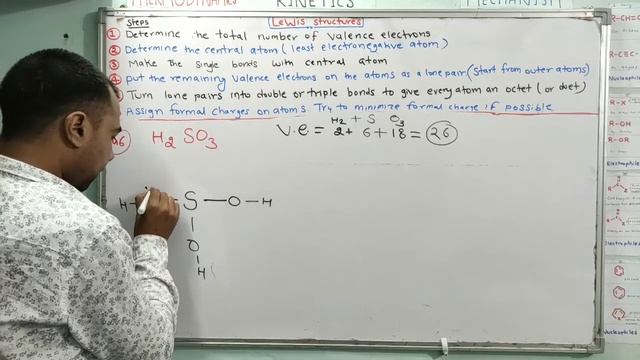 THERMODYNAMICS
KINETICS
MECHANISM
Steps
Lewis structures
① Determine the total number of valence electrons
② Determine the central atom (least electronegative atom)
③ Make the single bonds with central atom
④ put the remaining valence electrons on the atoms as a lone pair (start from outer atoms)
⑤ Turn lone pairs into double or triple bonds to give every atom an octet (or duet)
Assign formal charges on atoms. Try to minimize formal charge if possible
H2 SO3
H2 + S O3
V.e = 2+ 6+18 = 26
H — S — O — H
O
H
R-C≡C
R-X
R-OH
R-OH
Electrophiles